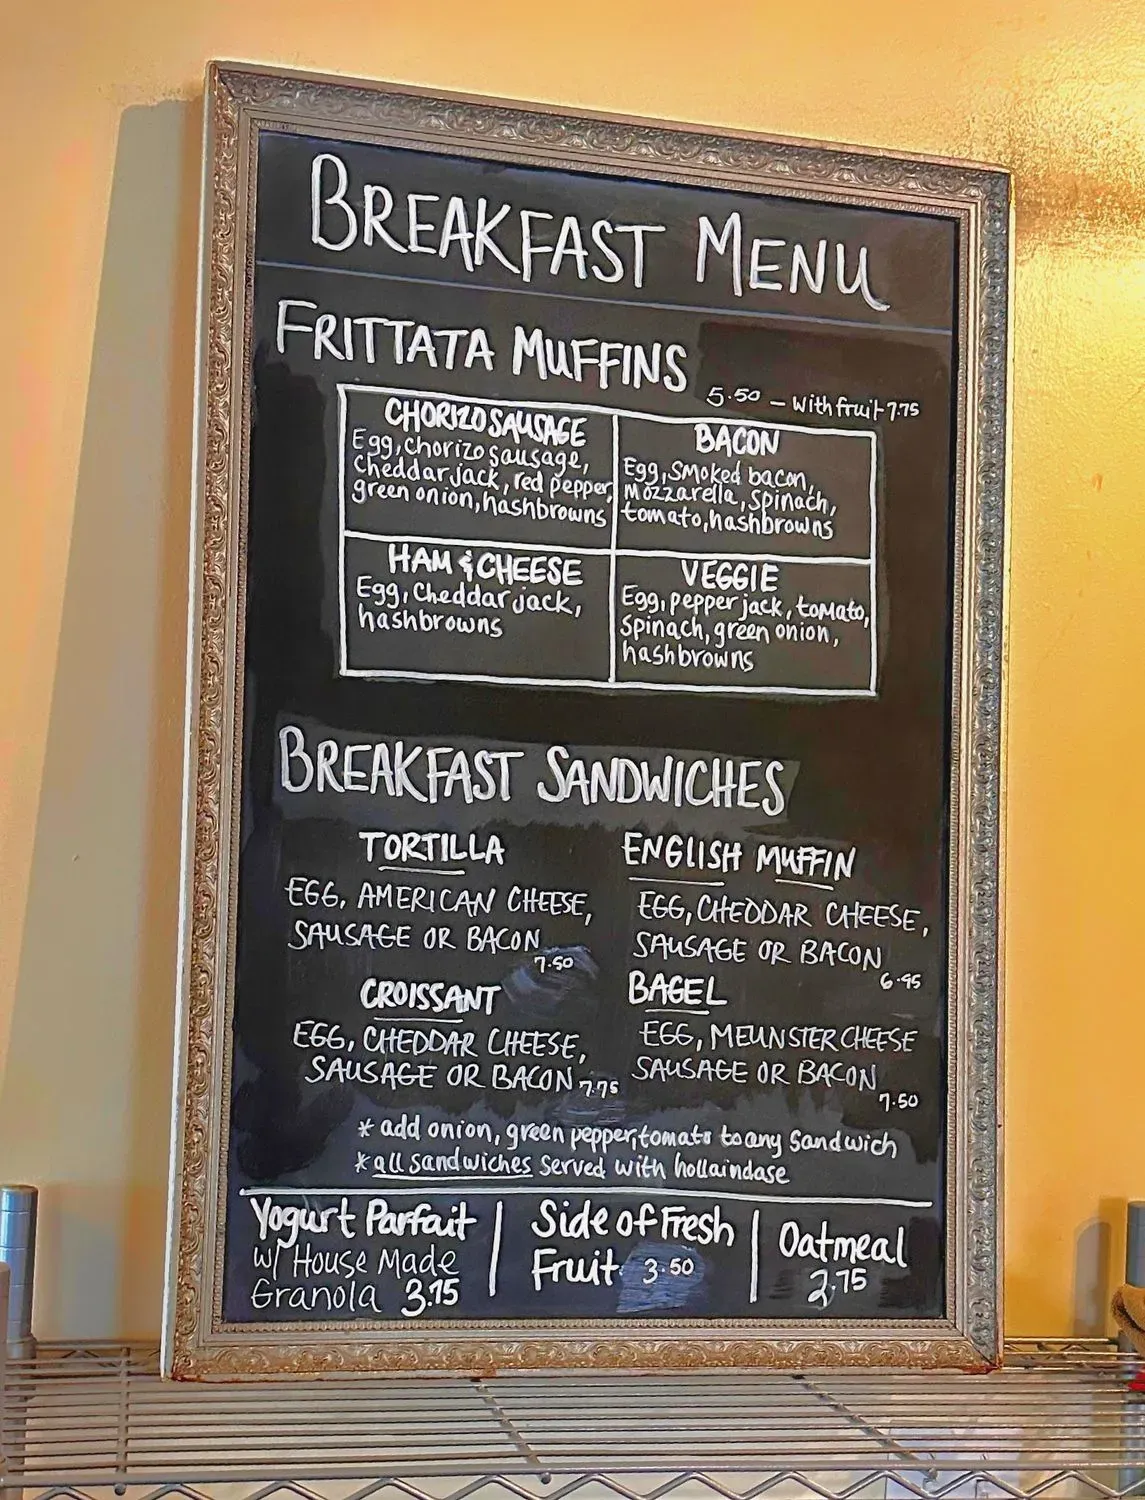 BREAKFAST MENU
FRITTATA MUFFINS
5.50 – with fruit 7.75
CHORIZO SAUSAGE
Egg, chorizo sausage,
cheddar jack, red pepper,
green onion, hashbrowns
BACON
Egg, smoked bacon,
mozzarella, spinach,
tomato, hashbrowns
HAM & CHEESE
Egg, Cheddar jack,
hashbrowns
VEGGIE
Egg, pepper jack, tomato,
spinach, green onion,
hashbrowns
BREAKFAST SANDWICHES
TORTILLA
EGG, AMERICAN CHEESE,
SAUSAGE OR BACON
7.50
ENGLISH MUFFIN
EGG, CHEDDAR CHEESE,
SAUSAGE OR BACON
6.95
CROISSANT
EGG, CHEDDAR CHEESE,
SAUSAGE OR BACON 7.75
BAGEL
EGG, MEUNSTER CHEESE
SAUSAGE OR BACON
7.50
* add onion, green pepper, tomato to any Sandwich
* all sandwiches Served with hollaindase
Yogurt Parfait
w/ House Made
Granola 3.75
Side of Fresh
Fruit 3.50
Oatmeal
2.75